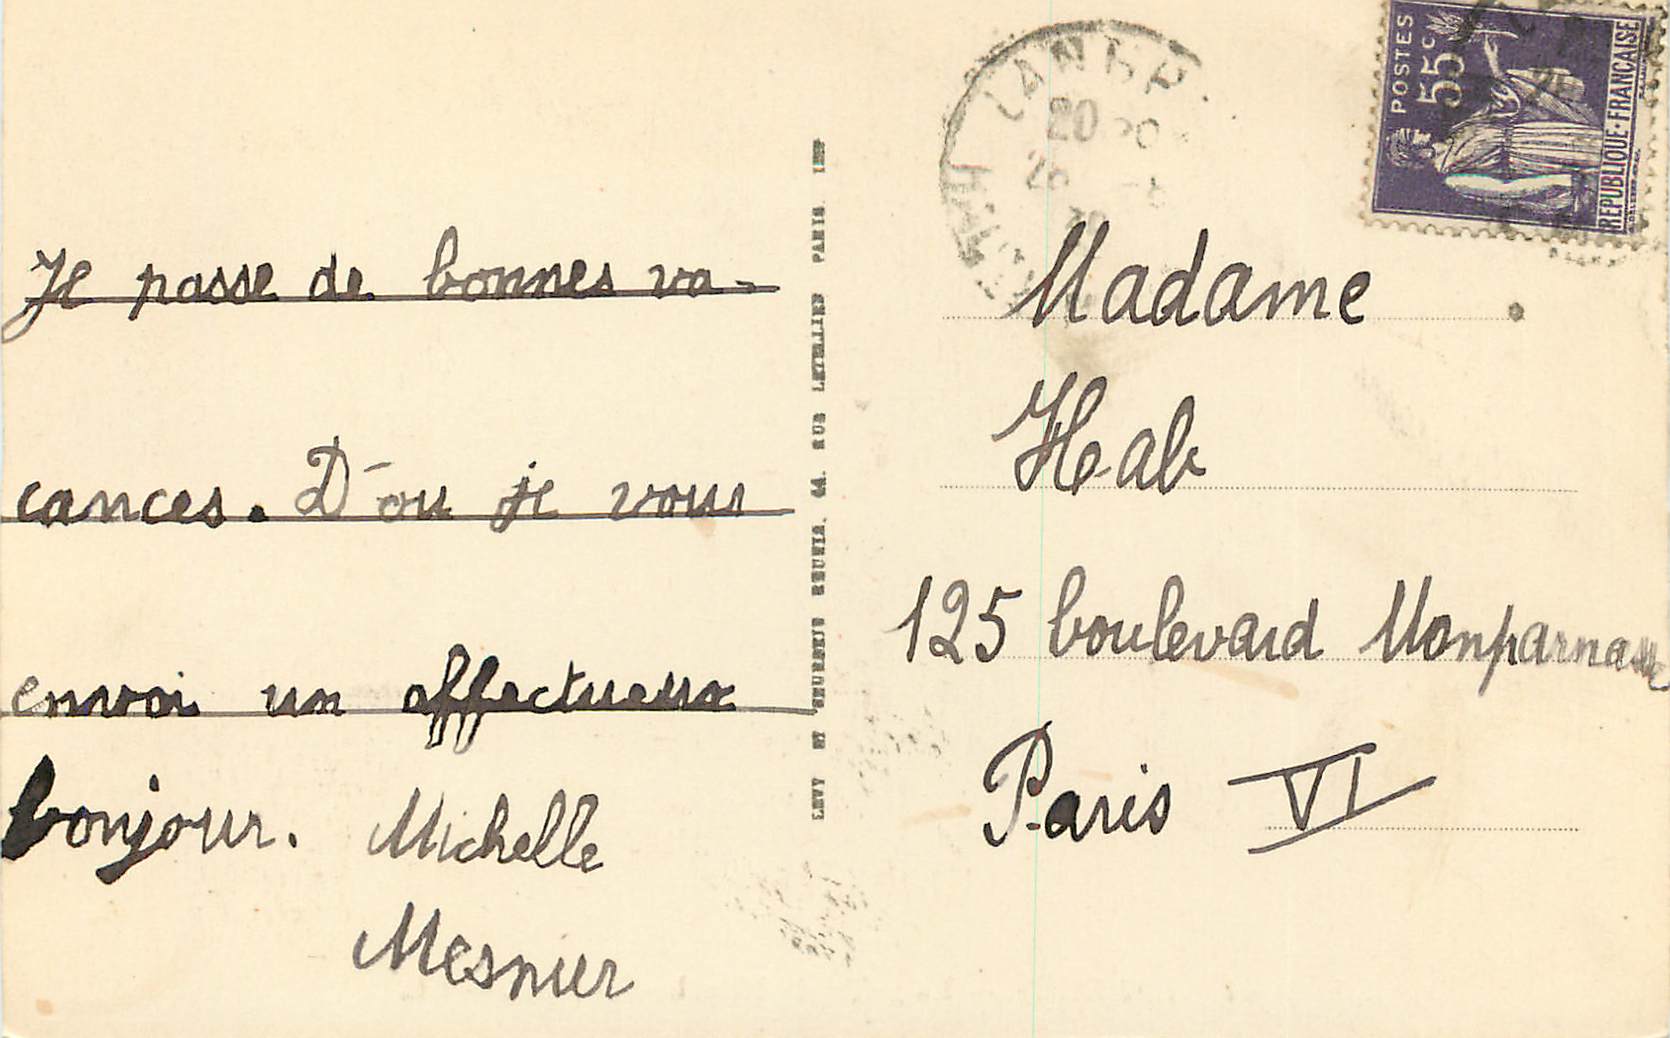 Je passe de bonnes va-
cances. D'ou je vous
envoi un affectueux
bonjour. Michelle
Mesnier
LEVY ET NEURDEIN REUNIS, 44, RUE LETELLIER PARIS IMP
POSTES
55c
REPUBLIQUE-FRANCAISE
20
Madame
Hab
125 boulevard Monparnasse
Paris VI